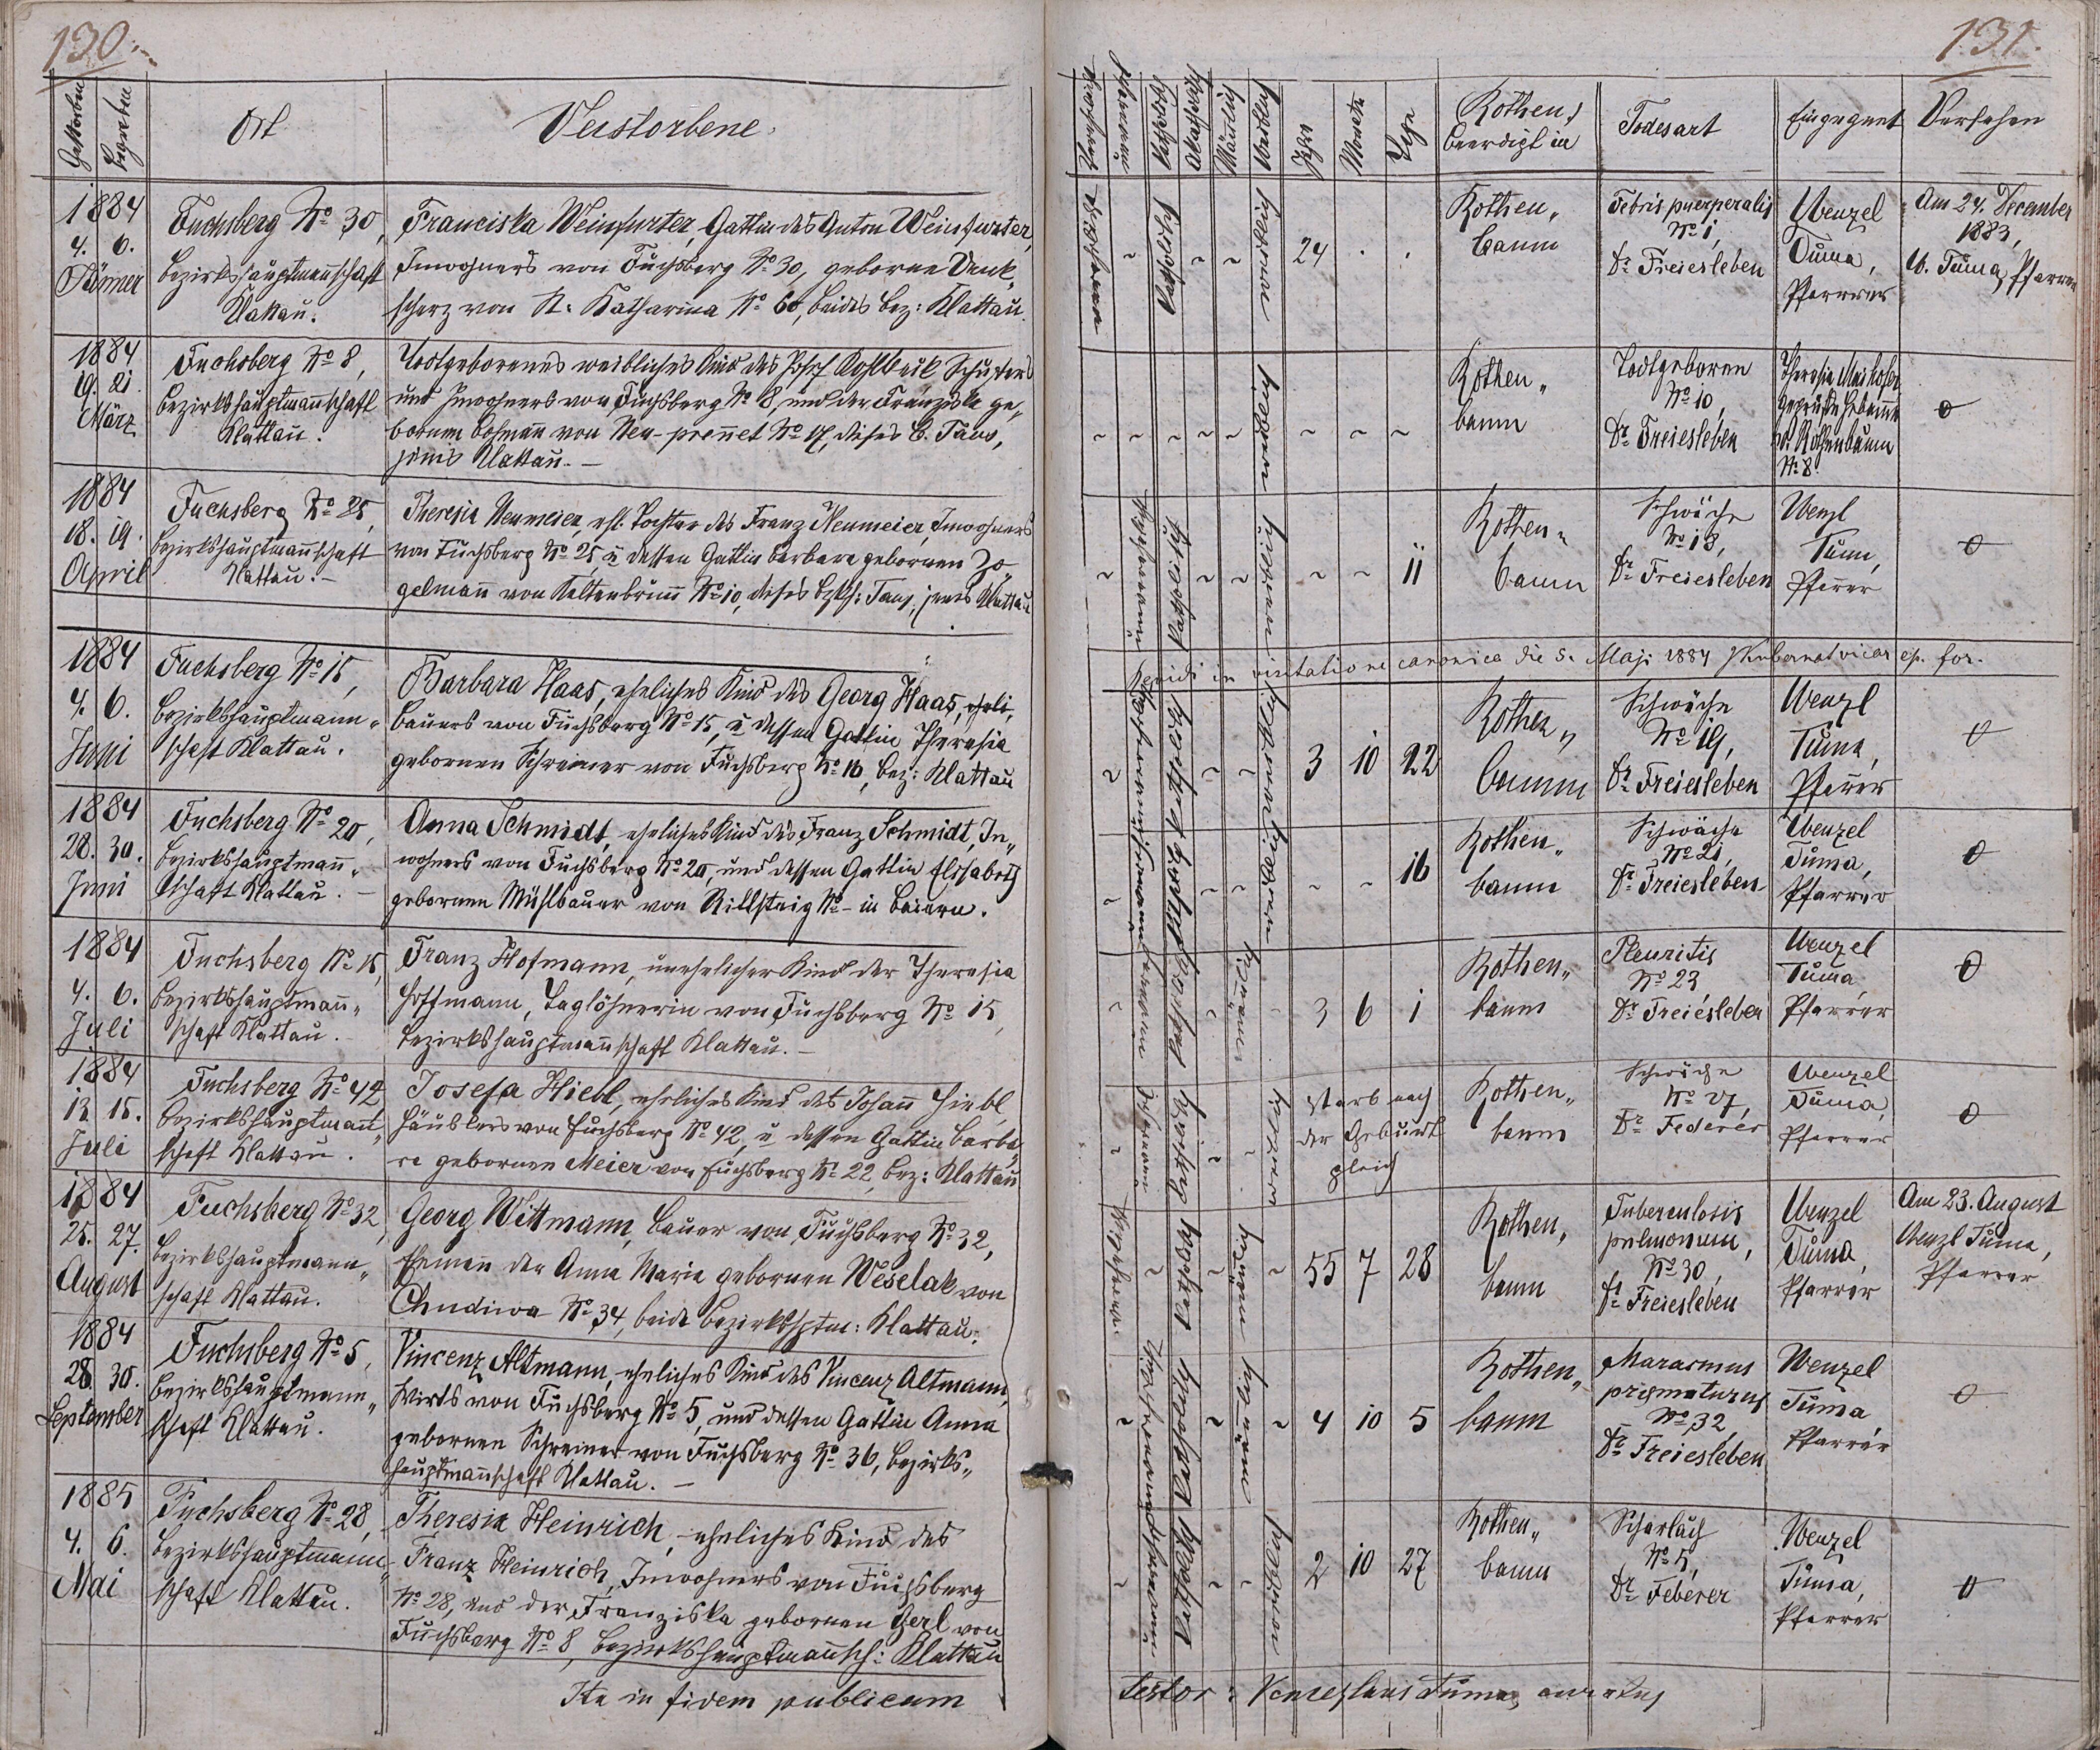 130.
Gestorben
Begraben
Ort
Verstorbene
1884
4. 6.
Jänner
Fuchsberg No 30,
Bezirkshauptmannschaft
Klattau.
Franciska Weinfurter, Gattin des Anton Weinfurter,
Inwohners von Fuchsberg No 30, geborne Denk
scherz von St. Katharina No 60, beides Bez: Klattau.
1884
19. 21.
März
Fuchsberg No 8,
Bezirkshauptmannschaft
Klattau.
Todtgeborenes weibliches Kind des Josef Kohlbeck Schusters
und Inwohners von Fuchsberg No 8, und der Franziska ge„
bornen Hofmann von Neu-prennet No 17, dieses B. Taus,
jenes Klattau.—
1884
18. 19.
April
Fuchsberg No 25,
Bezirkshauptmannschaft
Klattau.—
Theresia Neumeier, ehl. Tochter des Franz Neumeier, Inwohners
von Fuchsberg No 25, u dessen Gattin Barbara gebornen Zo„
gelmann von Kaltenbrunn No 10, dieses Taus, jenes Klattau
1884
4. 6.
Juni
Fuchsberg No 15,
Bezirkshauptmann„
schaft Klattau.
Barbara Haas, eheliches Kind des Georg Haas,
Bauers von Fuchsberg No 15, u dessen Gattin Theresia
gebornen Schreiner von Fuchsberg No 16, Bez: Klattau
1884
28. 30.
Juni
Fuchsberg No 20,
Bezirkshauptmann„
schaft Klattau.—
Anna Schmidt, eheliches Kind des Franz Schmidt, In„
wohners von Fuchsberg No 20, und dessen Gattin Elisabeth
gebornen Mühlbauer von Rittsteig No - in Baiern.
1884
4. 6.
Juli
Fuchsberg No 15,
Bezirkshauptmann„
schaft Klattau.
Franz Hofmann, unehelicher Kind der Theresia
Hoffmann, Taglöhnerin von Fuchsberg No 15,
Bezirkshauptmannschaft Klattau.—
1884
13. 15.
Juli
Fuchsberg No 42
Bezirkshauptmann„
schaft Klattau.
Josefa Hiebl, eheliches Kind des Johann Hiebl,
Häuslers von Fuchsberg No 42, u dessen Gattin Barba„
ra gebornen Meier von Fuchsberg No 22, Bez: Klattau
1884
25. 27.
August
Fuchsberg No 32,
Bezirkshauptmann„
schaft Klattau.
Georg Wittmann, Bauer von Fuchsberg No 32,
Ehemann der Anna Maria gebornen Weselak von
Chudiwa No 34, beide Bezirkshptm: Klattau.
1884
28. 30.
September
Fuchsberg No 5,
Bezirkshauptmann„
schaft Klattau.
Vincenz Altmann, eheliches Kind des Vincenz Altmann,
Wirts von Fuchsberg No 5, und dessen Gattin Anna
gebornen Schreiner von Fuchsberg No 36, Bezirks„
hauptmannschaft Klattau.—
1885
4. 6.
Mai
Fuchsberg No 28,
Bezirkshauptmann„
schaft Klattau.
Theresia Heinrich, eheliches Kind des
Franz Heinrich, Inwohners von Fuchsberg
No 28, und der Franziska gebornen Gerl von
Fuchsberg No 8, Bezirkshauptmannsch: Klattau
Ita in fidem publicam
131.
Katholisch
Akatholisch
Männlich
Weiblich
Jahre
Monate
Tage
Rothen,
Beerdigt in
Todesart
Eingegnet
Versehen
Katholisch
24 . .
Rothen„
baum
Febris puerperalis
No 1,
Dr Freiesleben
Wenzel
Tuma,
Pfarrer
Am 24. December
1883,
W. Tuma, Pfarrer
Rothen„
baum
Todtgeboren
No 10,
Dr Freiesleben
Theresia Maihofer
geprüfte Hebamme
Rothenbaum
No 8
0
Katholisch
11
Rothen„
baum
Schwäche
No 13,
Dr Freiesleben
Wenzl
Tuma,
Pfarrer
0
Revidi in visitatione canonica die 5. Maji 1884
3 10 22
Rothen„
baum
Schwäche
No 19,
Dr Freiesleben
Wenzl
Tuma,
Pfarrer
0
16
Rothen„
baum
Schwäche
No 21,
Dr Freiesleben
Wenzel
Tuma,
Pfarrer
0
3 6 1
Rothen„
baum
Pleuritis
No 23
Dr Freiesleben
Wenzel
Tuma
Pfarrer
0
starb nach
der Geburt
gleich
Rothen„
baum
Schwäche
No 27,
Dr Federer
Wenzel
Tuma,
Pfarrer
0
Katholisch
55 7 28
Rothen„
baum
Tuberculosis
pulmonum,
No 30,
Dr Freiesleben
Wenzel
Tuma,
Pfarrer
Am 23. August
Wenzl Tuma,
Pfarrer
Katholisch
4 10 5
Rothen„
baum
Marasmus
prämaturus
No 32,
Dr Freiesleben
Wenzel
Tuma,
Pfarrer
0
Katholisch
2 10 27
Rothen„
baum
Scharlach
No 5,
Dr Feberer
Wenzel
Tuma,
Pfarrer
0
Testor: Venceslaus Tuma, curatus